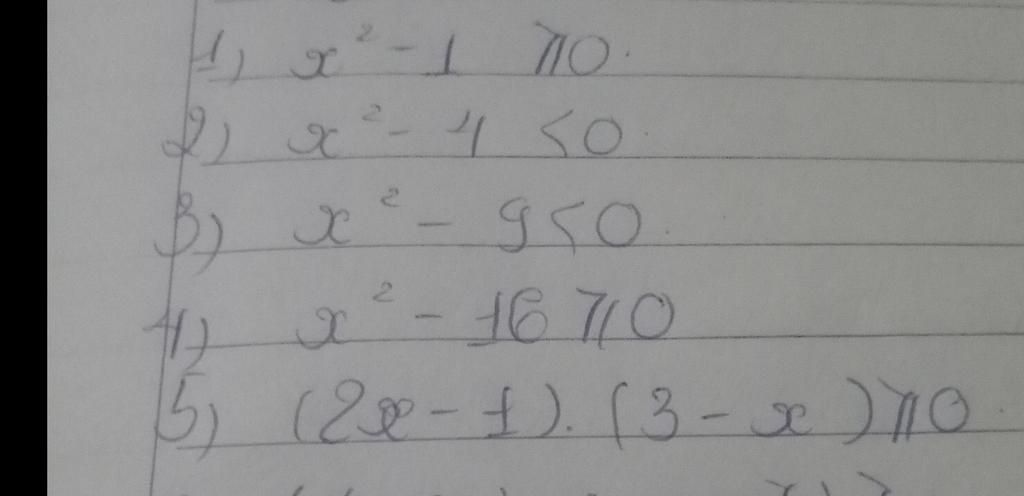 1) x² - 1 ⩾0.
2) x² - 4 <0.
3) x² - 9<0.
4) x² - 16 ⩾0
5) (2x - 1).(3 - x)⩾0.